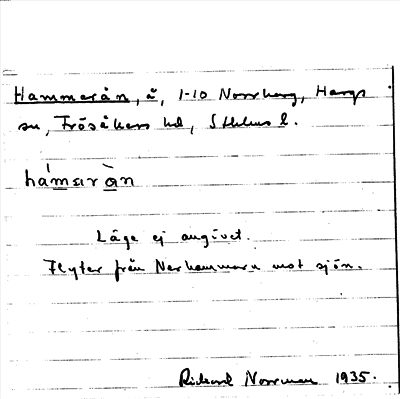 Hammarån, å, 1-10 Norrberg, Hargs
sn, Frösåkers hd, Sthlms l.
hámaràn
Läge ej angivet.
Flyter från Nerhammarn mot sjön.
Rickard Norrman 1935.